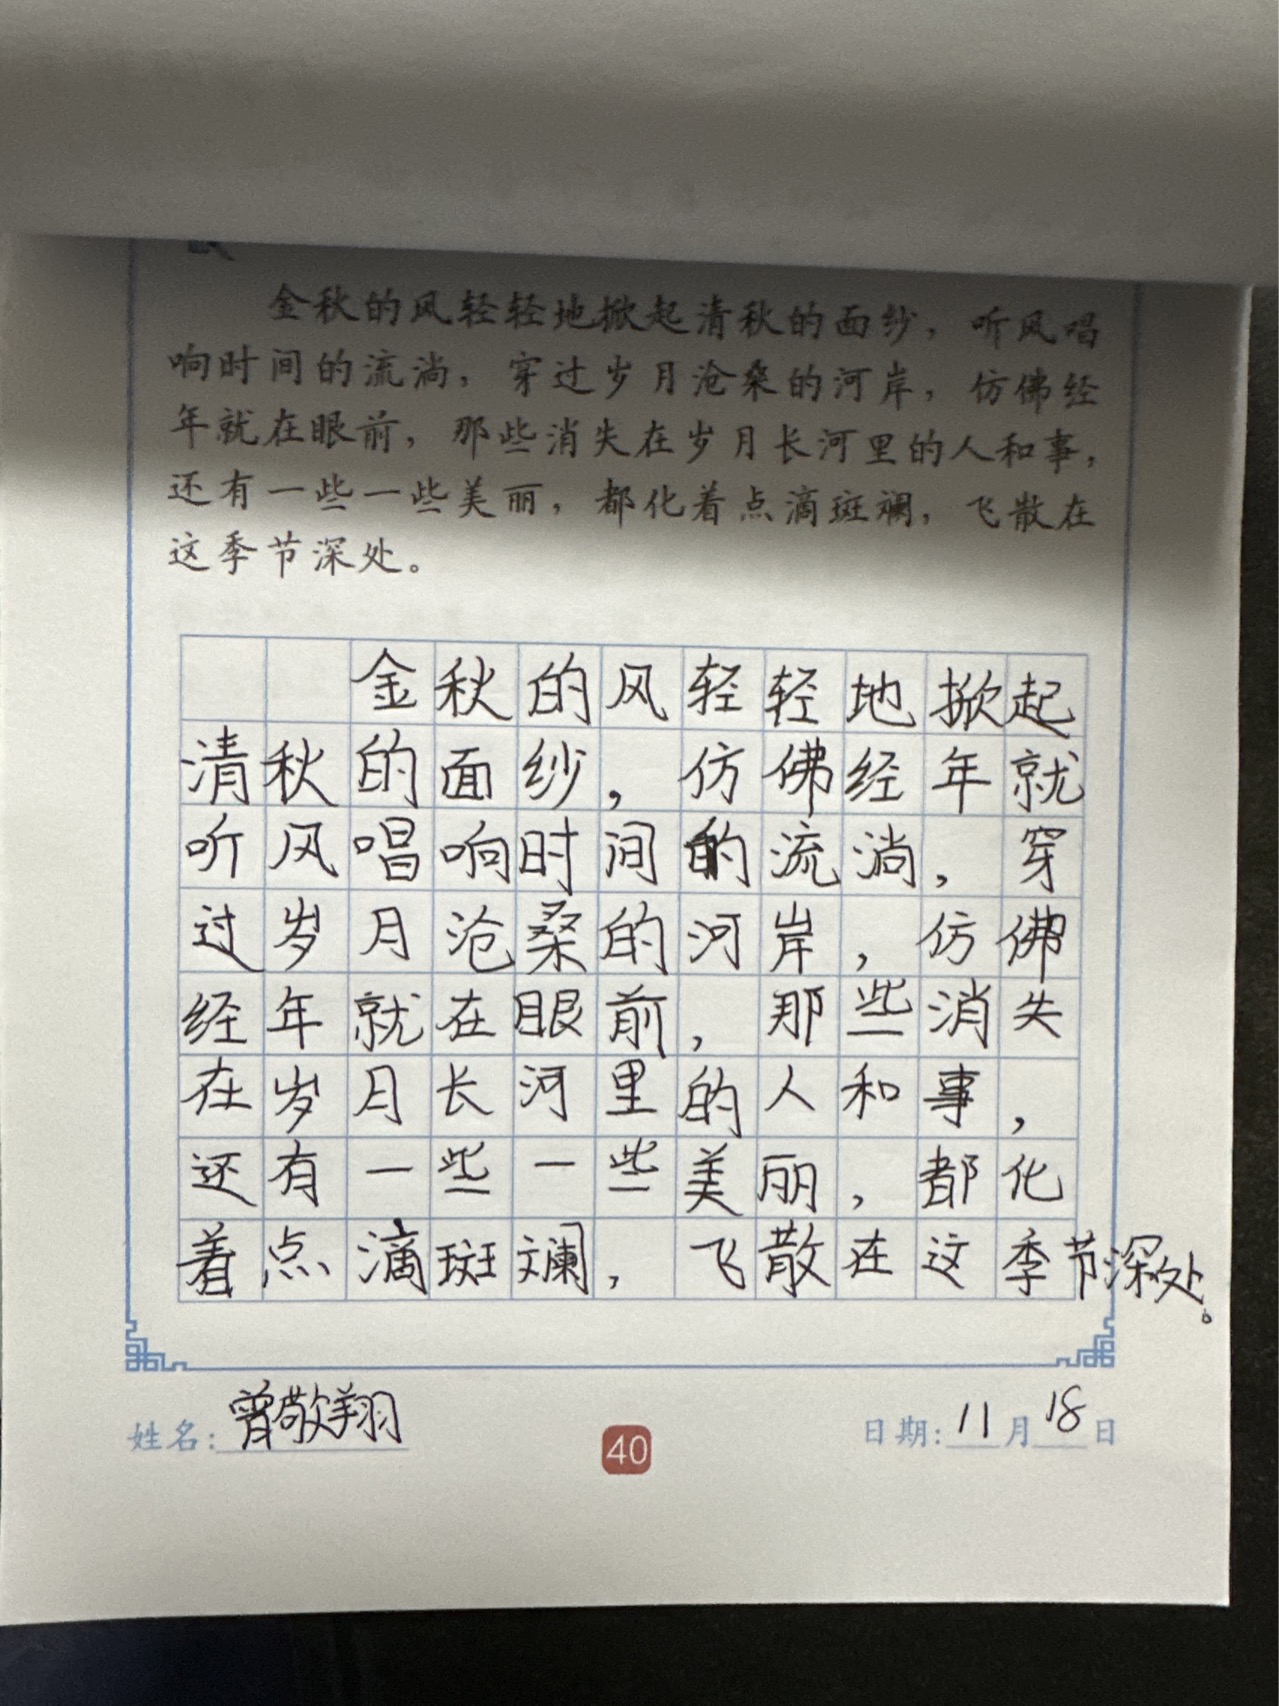 金秋的风轻轻地掀起清秋的面纱，听风唱
响时间的流淌，穿过岁月沧桑的河岸，仿佛经
年就在眼前，那些消失在岁月长河里的人和事，
还有一些一些美丽，都化着点滴斑斓，飞散在
这季节深处。
金秋的风轻轻地掀起
清秋的面纱，仿佛经年就
听风唱响时间的流淌，穿
过岁月沧桑的河岸，仿佛
经年就在眼前，那些消失
在岁月长河里的人和事，
还有一些一些美丽，都化
着点滴斑斓，飞散在这季节深处。
姓名：曾敬翔 40 日期：11月18日